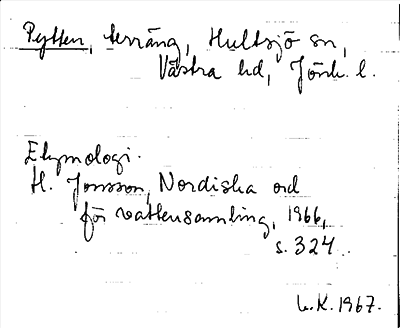 Pytten, terräng, Hultsjö sn,
Västra hd, Jönk. l.
Etymologi.
H. Jonsson, Nordiska ord
för vattensamling, 1966,
s. 324.
L.K. 1967.